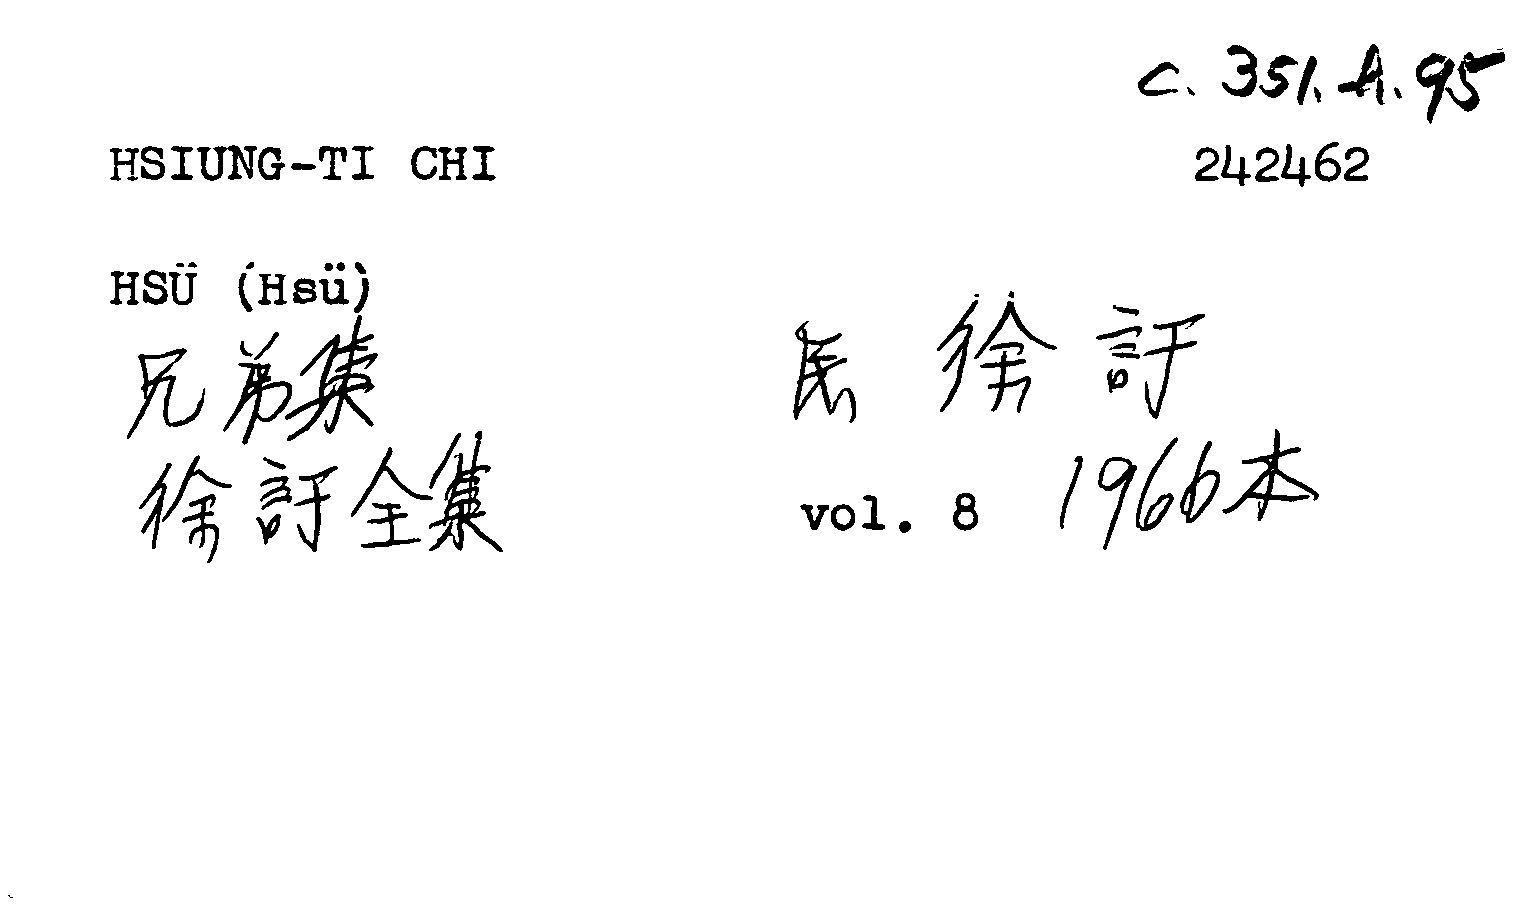 c. 351. A. 95
HSIUNG-TI CHI 242462
HSÜ (Hsü)
兄弟集 民 徐訏
徐訏全集 vol. 8 1966本